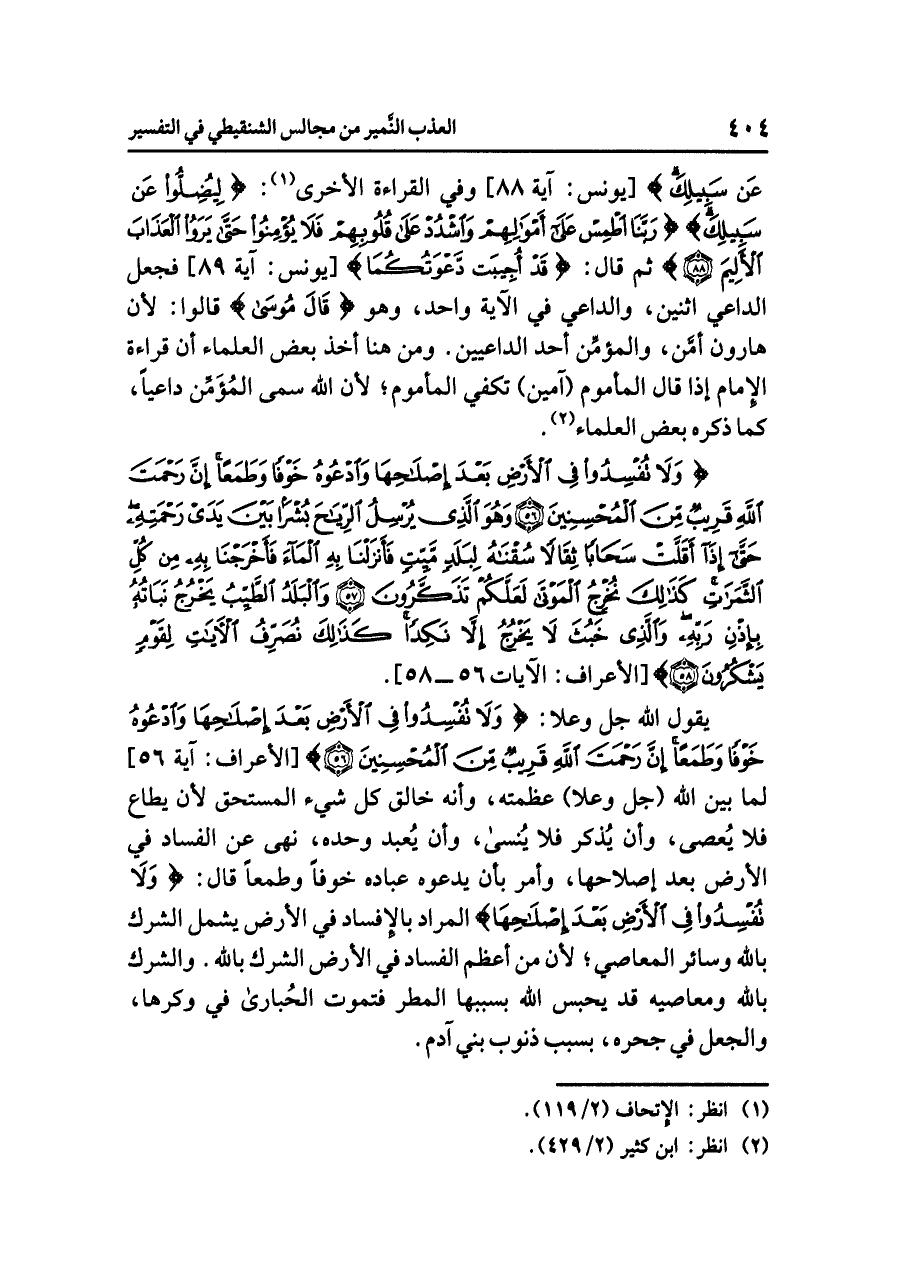 ٤٠٤ العذب النَّمير من مجالس الشنقيطي في التفسير
عَن سَبِيلِكَۖ ﴾ [يونس: آية ٨٨] وفي القراءة الأخرى(١): ﴿ لِيُضِلُّواْ عَن
سَبِيلِكَۖ﴾ ﴿ رَبَّنَا ٱطْمِسْ عَلَىٰٓ أَمْوَٰلِهِمْ وَٱشْدُدْ عَلَىٰ قُلُوبِهِمْ فَلَا يُؤْمِنُواْ حَتَّىٰ يَرَوُاْ ٱلْعَذَابَ
ٱلْأَلِيمَ ٨٨ ﴾ ثم قال: ﴿ قَدْ أُجِيبَت دَّعْوَتُكُمَا﴾ [يونس: آية ٨٩] فجعل
الداعي اثنين، والداعي في الآية واحد، وهو ﴿ قَالَ مُوسَىٰ ﴾ قالوا: لأن
هارون أمَّن، والمؤمِّن أحد الداعيين. ومن هنا أخذ بعض العلماء أن قراءة
الإمام إذا قال المأموم (آمين) تكفي المأموم؛ لأن الله سمى المُؤَمِّن داعياً،
كما ذكره بعض العلماء(٢).
﴿ وَلَا نُفْسِدُواْ فِى ٱلْأَرْضِ بَعْدَ إِصْلَٰحِهَا وَٱدْعُوهُ خَوْفًا وَطَمَعًاۚ إِنَّ رَحْمَتَ
ٱللَّهِ قَرِيبٌ مِّنَ ٱلْمُحْسِنِينَ ٥٦ وَهُوَ ٱلَّذِى يُرْسِلُ ٱلرِّيَٰحَ بُشْرًۢا بَيْنَ يَدَىْ رَحْمَتِهِۦۖ
حَتَّىٰٓ إِذَآ أَقَلَّتْ سَحَابًا ثِقَالًا سُقْنَٰهُ لِبَلَدٍ مَّيِّتٍ فَأَنزَلْنَا بِهِ ٱلْمَآءَ فَأَخْرَجْنَا بِهِۦ مِن كُلِّ
ٱلثَّمَرَٰتِۚ كَذَٰلِكَ نُخْرِجُ ٱلْمَوْتَىٰ لَعَلَّكُمْ تَذَكَّرُونَ ٥٧ وَٱلْبَلَدُ ٱلطَّيِّبُ يَخْرُجُ نَبَاتُهُۥ
بِإِذْنِ رَبِّهِۦۖ وَٱلَّذِى خَبُثَ لَا يَخْرُجُ إِلَّا نَكِدًاۚ كَذَٰلِكَ نُصَرِّفُ ٱلْأَيَٰتِ لِقَوْمٍ
يَشْكُرُونَ ٥٨﴾ [الأعراف: الآيات ٥٦ ــ ٥٨].
يقول الله جل وعلا: ﴿ وَلَا نُفْسِدُواْ فِى ٱلْأَرْضِ بَعْدَ إِصْلَٰحِهَا وَٱدْعُوهُ
خَوْفًا وَطَمَعًاۚ إِنَّ رَحْمَتَ ٱللَّهِ قَرِيبٌ مِّنَ ٱلْمُحْسِنِينَ ٥٦ ﴾ [الأعراف: آية ٥٦]
لما بين الله (جل وعلا) عظمته، وأنه خالق كل شيء المستحق لأن يطاع
فلا يُعصى، وأن يُذكر فلا يُنسىٰ، وأن يُعبد وحده، نهى عن الفساد في
الأرض بعد إصلاحها، وأمر بأن يدعوه عباده خوفاً وطمعاً قال: ﴿ وَلَا
نُفْسِدُواْ فِى ٱلْأَرْضِ بَعْدَ إِصْلَٰحِهَا﴾ المراد بالإفساد في الأرض يشمل الشرك
بالله وسائر المعاصي؛ لأن من أعظم الفساد في الأرض الشرك بالله. والشرك
بالله ومعاصيه قد يحبس الله بسببها المطر فتموت الحُبارىٰ في وكرها،
والجعل في جحره، بسبب ذنوب بني آدم.
(١) انظر: الإتحاف (١١٩/٢).
(٢) انظر: ابن كثير (٤٢٩/٢).